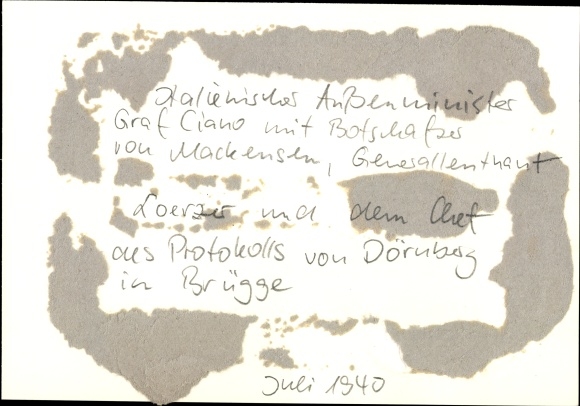 Italienischer Außenminister
Graf Ciano mit Botschafter
von Mackensen, Generalleutnant
Loerzer und dem Chef
des Protokolls von Dörnberg
in Brügge
Juli 1940